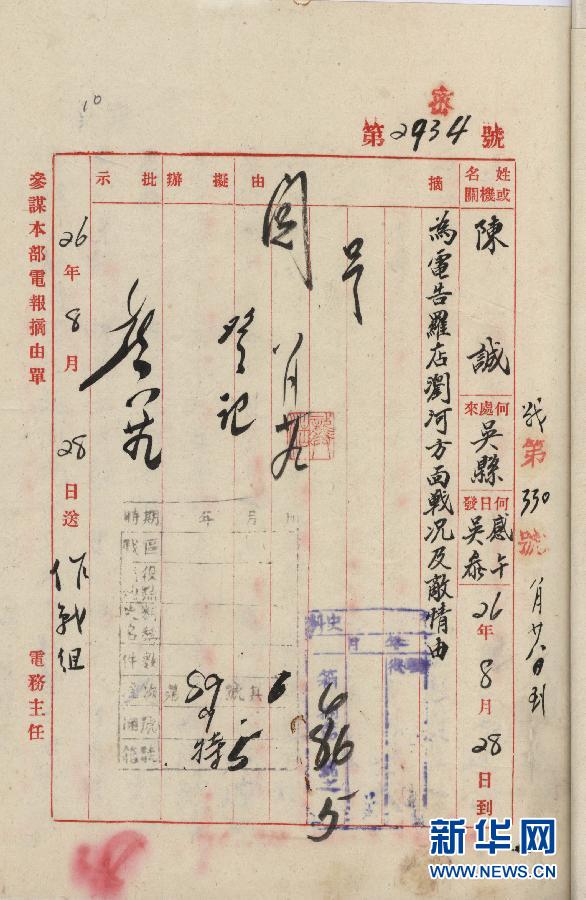 密
第2934號
10
姓名或機關
陳誠
何處來
吳縣
何日發
感午
吳參
26年8月28日到
摘由
為電告羅店瀏河方面戰况及敵情由
擬辦
閱
八月廿九
登記
批示
八廿九
26年8月28日送
作戰組
參謀本部電報摘由單
電務主任
第330號
八月廿八日到
時期
年月日
戰區
59
特5
6
史料
年月
6
86
5
新华网
WWW.NEWS.CN